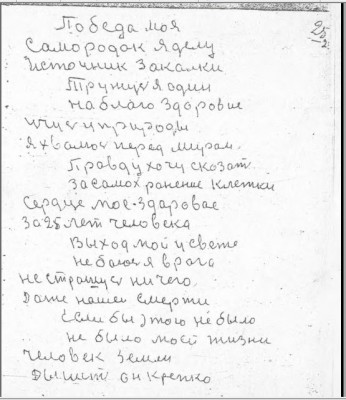 Победа моя
25
2
Самородок я делу
Источник Закалки
Тружуся я один
на благо здоровье
ищу и природы
Я хвалюсь перед миром.
Правду хочу сказат
за самохранение клетки
Сердце мое - здаровае
За 25 лет человека
Выход мой и свете
не боюся я врага
не страшуся ничего.
Даже нашей смерти
Если бы этого не было
не было моей жизни
Человек Земли
Дышит он крепко